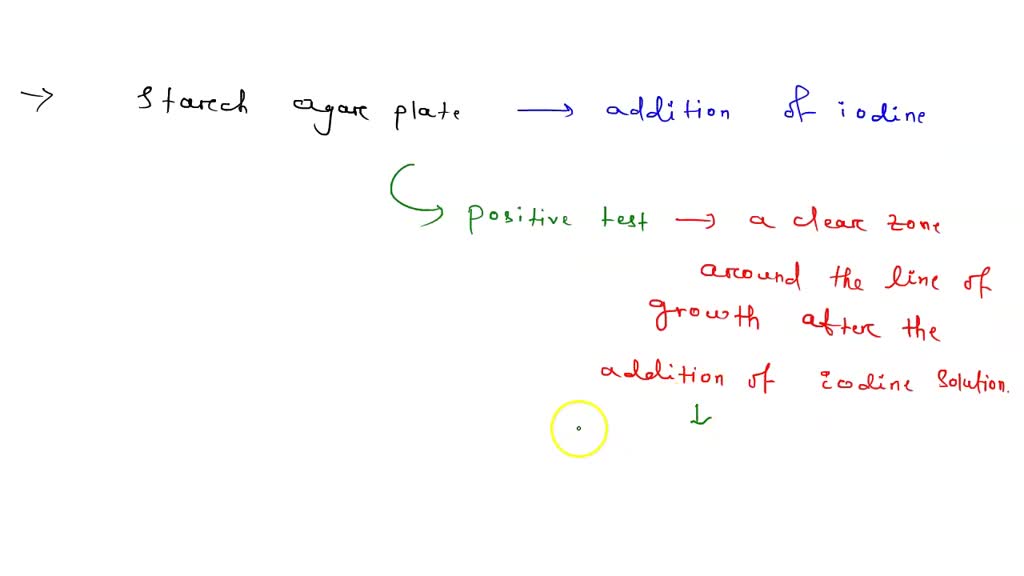 → Starch agar plate → addition of iodine
positive test → a clear zone
around the line of
growth after the
addition of iodine solution.
↓